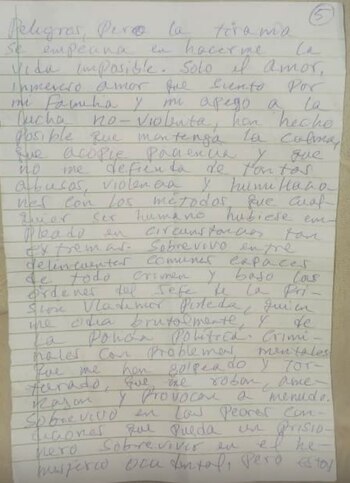 5
Peligros, Pero la tirania
se empeuna en hacerme la
vida imposible. Solo el amor,
inmenso amor que siento por
mi Familia y mi apego a la
lucha no-violenta, han hecho
posible que mantenga la calma,
que acopie paciencia y que
no me defienda de tantos
abusos, violencia y humillacio
nes con los métodos que cual
quier ser humano hubiese em
pleado en circunstancias tan
extremas. Sobrevivo entre
delincuentes comunes capaces
de todo crimen y bajo las
ordenes del Jefe de la Pri
sion Vladimir Pineda, quien
me odia brutalmente, y de
la Policia Politica. Crimi
nales con problemas mentales
que me han golpeado y tor
turado, que me roban, ame
nazan y Provocan a menudo.
Sobrevivo en las Peores con
diciones que pueda un prisio
nero sobrevivir en el he
misferio occidental, pero estoy